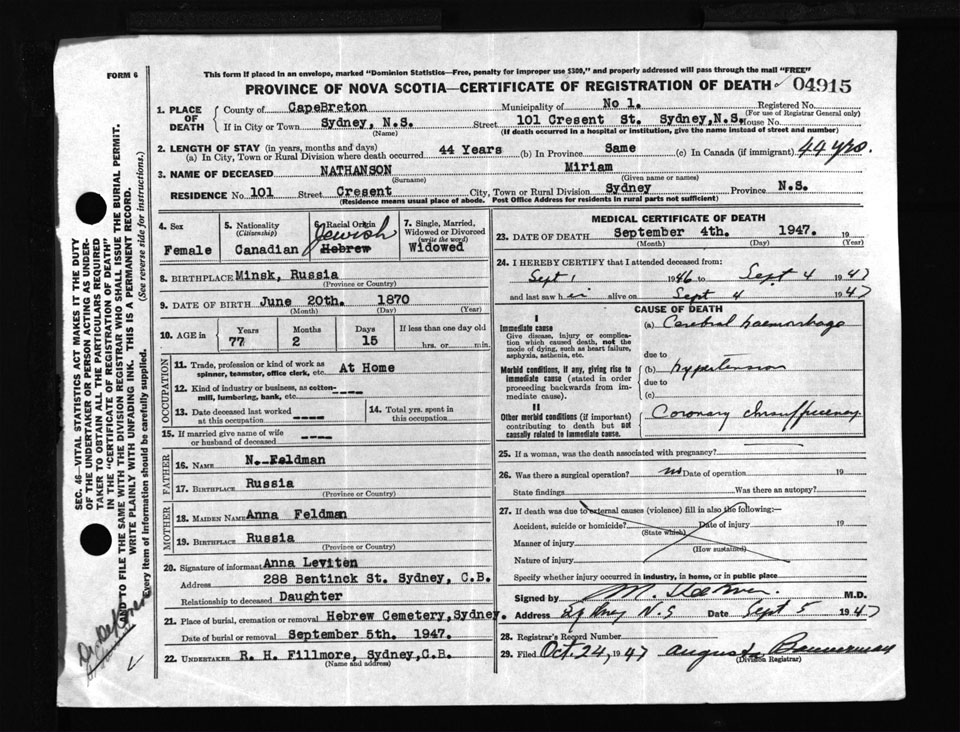 FORM 6
This form if placed in an envelope, marked "Dominion Statistics—Free, penalty for improper use $300," and properly addressed will pass through the mail "FREE"
PROVINCE OF NOVA SCOTIA—CERTIFICATE OF REGISTRATION OF DEATH
04915
1. PLACE OF DEATH
County of CapeBreton Municipality of No 1. Registered No.
(For use of Registrar General only)
If in City or Town Sydney, N.S. Street 101 Cresent St. Sydney,N.S. House No
(Name) (If death occurred in a hospital or institution, give the name instead of street and number)
2. LENGTH OF STAY (in years, months and days)
(a) In City, Town or Rural Division where death occurred 44 Years (b) In Province Same (c) In Canada (if immigrant) 44 yrs.
3. NAME OF DECEASED NATHANSON Miriam
(Surname) (Given name or names)
RESIDENCE No 101 Street Cresent City, Town or Rural Division Sydney Province N.S.
(Residence means usual place of abode. Post Office Address for residents in rural parts not sufficient)
4. Sex
Female
5. Nationality
(Citizenship)
Canadian
6. Racial Origin
Jewish
Hebrew
7. Single, Married, Widowed or Divorced
(write the word)
Widowed
8. BIRTHPLACE Minsk, Russia
(Province or Country)
9. DATE OF BIRTH June 20th. 1870
(Month) (Day) (Year)
10. AGE in
Years Months Days If less than one day old
77 2 15 hrs. or min.
OCCUPATION
11. Trade, profession or kind of work as spinner, teamster, office clerk, etc. At Home
12. Kind of industry or business, as cotton-mill, lumbering, bank, etc. ----
13. Date deceased last worked at this occupation ----
14. Total yrs. spent in this occupation
15. If married give name of wife or husband of deceased ----
FATHER
16. NAME N. Feldman
17. BIRTHPLACE Russia
(Province or Country)
MOTHER
18. MAIDEN NAME Anna Feldman
19. BIRTHPLACE Russia
(Province or Country)
20. Signature of informant Anna Leviten
Address 288 Bentinck St. Sydney, C.B.
Relationship to deceased Daughter
21. Place of burial, cremation or removal Hebrew Cemetery,Sydney.
Date of burial or removal September 5th. 1947.
22. UNDERTAKER R. H. Fillmore, Sydney,C.B.
(Name and address)
MEDICAL CERTIFICATE OF DEATH
23. DATE OF DEATH September 4th. 1947. 19
(Month) (Day) (Year)
24. I HEREBY CERTIFY that I attended deceased from:
Sept 1 1946 to Sept 4 1947
and last saw h alive on Sept 4 1947
CAUSE OF DEATH
I
Immediate cause
Give disease, injury or complication which caused death, not the mode of dying, such as heart failure, asphyxia, asthenia, etc.
(a) Cerebral haemorrhage
due to
Morbid conditions, if any, giving rise to immediate cause (stated in order proceeding backwards from immediate cause).
(b) Hypertension
due to
(c)
II
Other morbid conditions (if important) contributing to death but not causally related to immediate cause.
Coronary insufficiency
25. If a woman, was the death associated with pregnancy?
26. Was there a surgical operation? no Date of operation 19
State findings Was there an autopsy?
27. If death was due to external causes (violence) fill in also the following:—
Accident, suicide or homicide? Date of injury 19
(State which)
Manner of injury
(How sustained)
Nature of injury
Specify whether injury occurred in industry, in home, or in public place
Signed by M.D.
Address Sydney N.S Date Sept 5 1947
28. Registrar's Record Number
29. Filed Oct. 24, 1947 Augusta Bannerman
(Division Registrar)
SEC. 46—VITAL STATISTICS ACT MAKES IT THE DUTY
OF THE UNDERTAKER OR PERSON ACTING AS UNDER-
TAKER TO OBTAIN ALL THE PARTICULARS REQUIRED
IN THE "CERTIFICATE OF REGISTRATION OF DEATH"
AND TO FILE THE SAME WITH THE DIVISION REGISTRAR WHO SHALL ISSUE THE BURIAL PERMIT.
WRITE PLAINLY WITH UNFADING INK. THIS IS A PERMANENT RECORD.
Every item of Information should be carefully supplied. (See reverse side for instructions.)